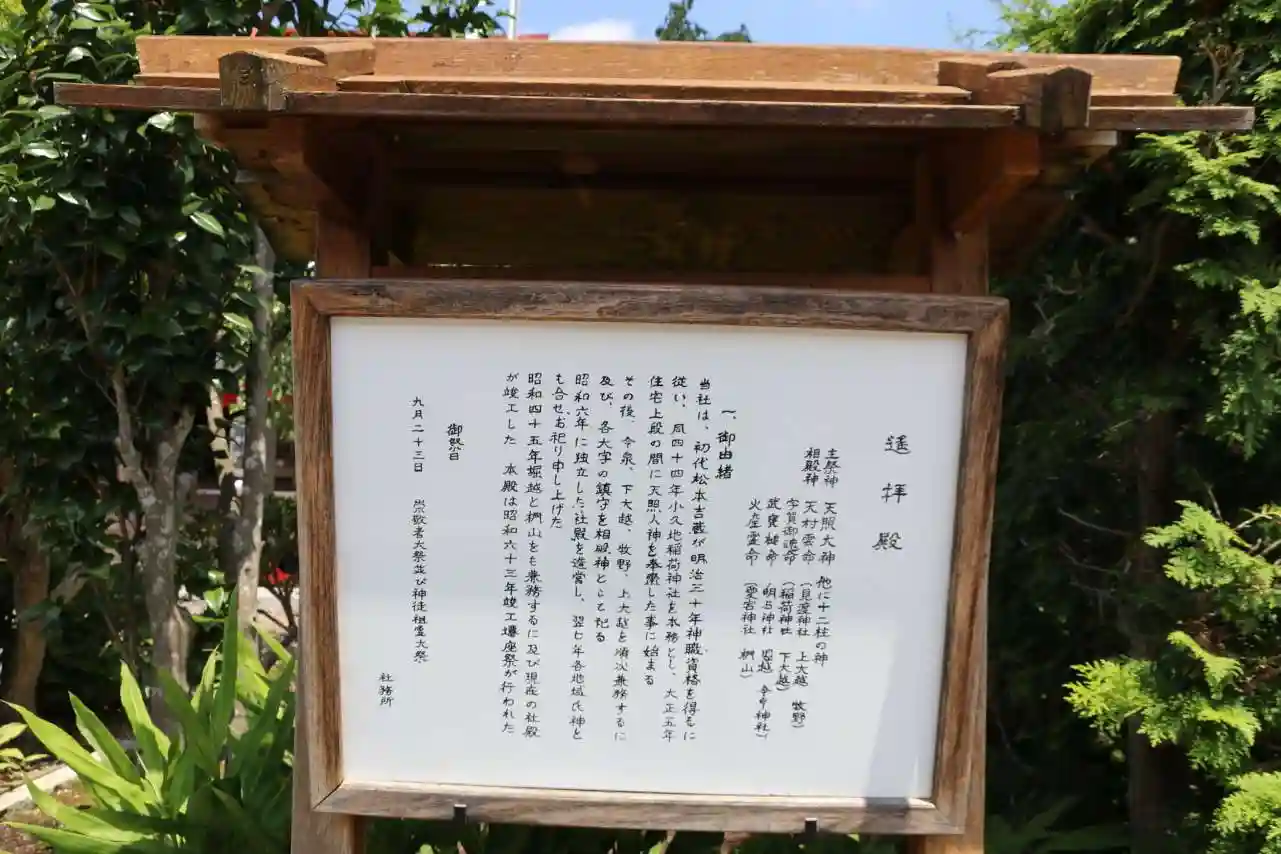 遥拝殿
主祭神 天照大神 他に十二柱の神
相殿神 天村雲命 (見渡神社 上大越 牧野)
宇賀御魂命 (稲荷神社 下大越)
武甕槌命 明神社 堀越 今泉神社)
火産霊命 (愛宕神社 椚山)
一、御由緒
当社は、初代松本吉蔵が明治三十年神職資格を得るに
従い、同四十四年小久地稲荷神社を本務とし、大正五年
住宅上段の間に天照大神を奉斎した事に始まる
その後、今泉、下大越、牧野、上大越を順次兼務するに
及び、各大字の鎮守を相殿神として祀る
昭和六年に独立した社殿を造営し、翌七年各地域氏神と
も合せお祀り申し上げた
昭和四十五年堀越と椚山をも兼務するに及び現在の社殿
が竣工した 本殿は昭和六十三年竣工遷座祭が行われた
御祭日
九月二十三日 崇敬者大祭並び神徒祖霊大祭
社務所